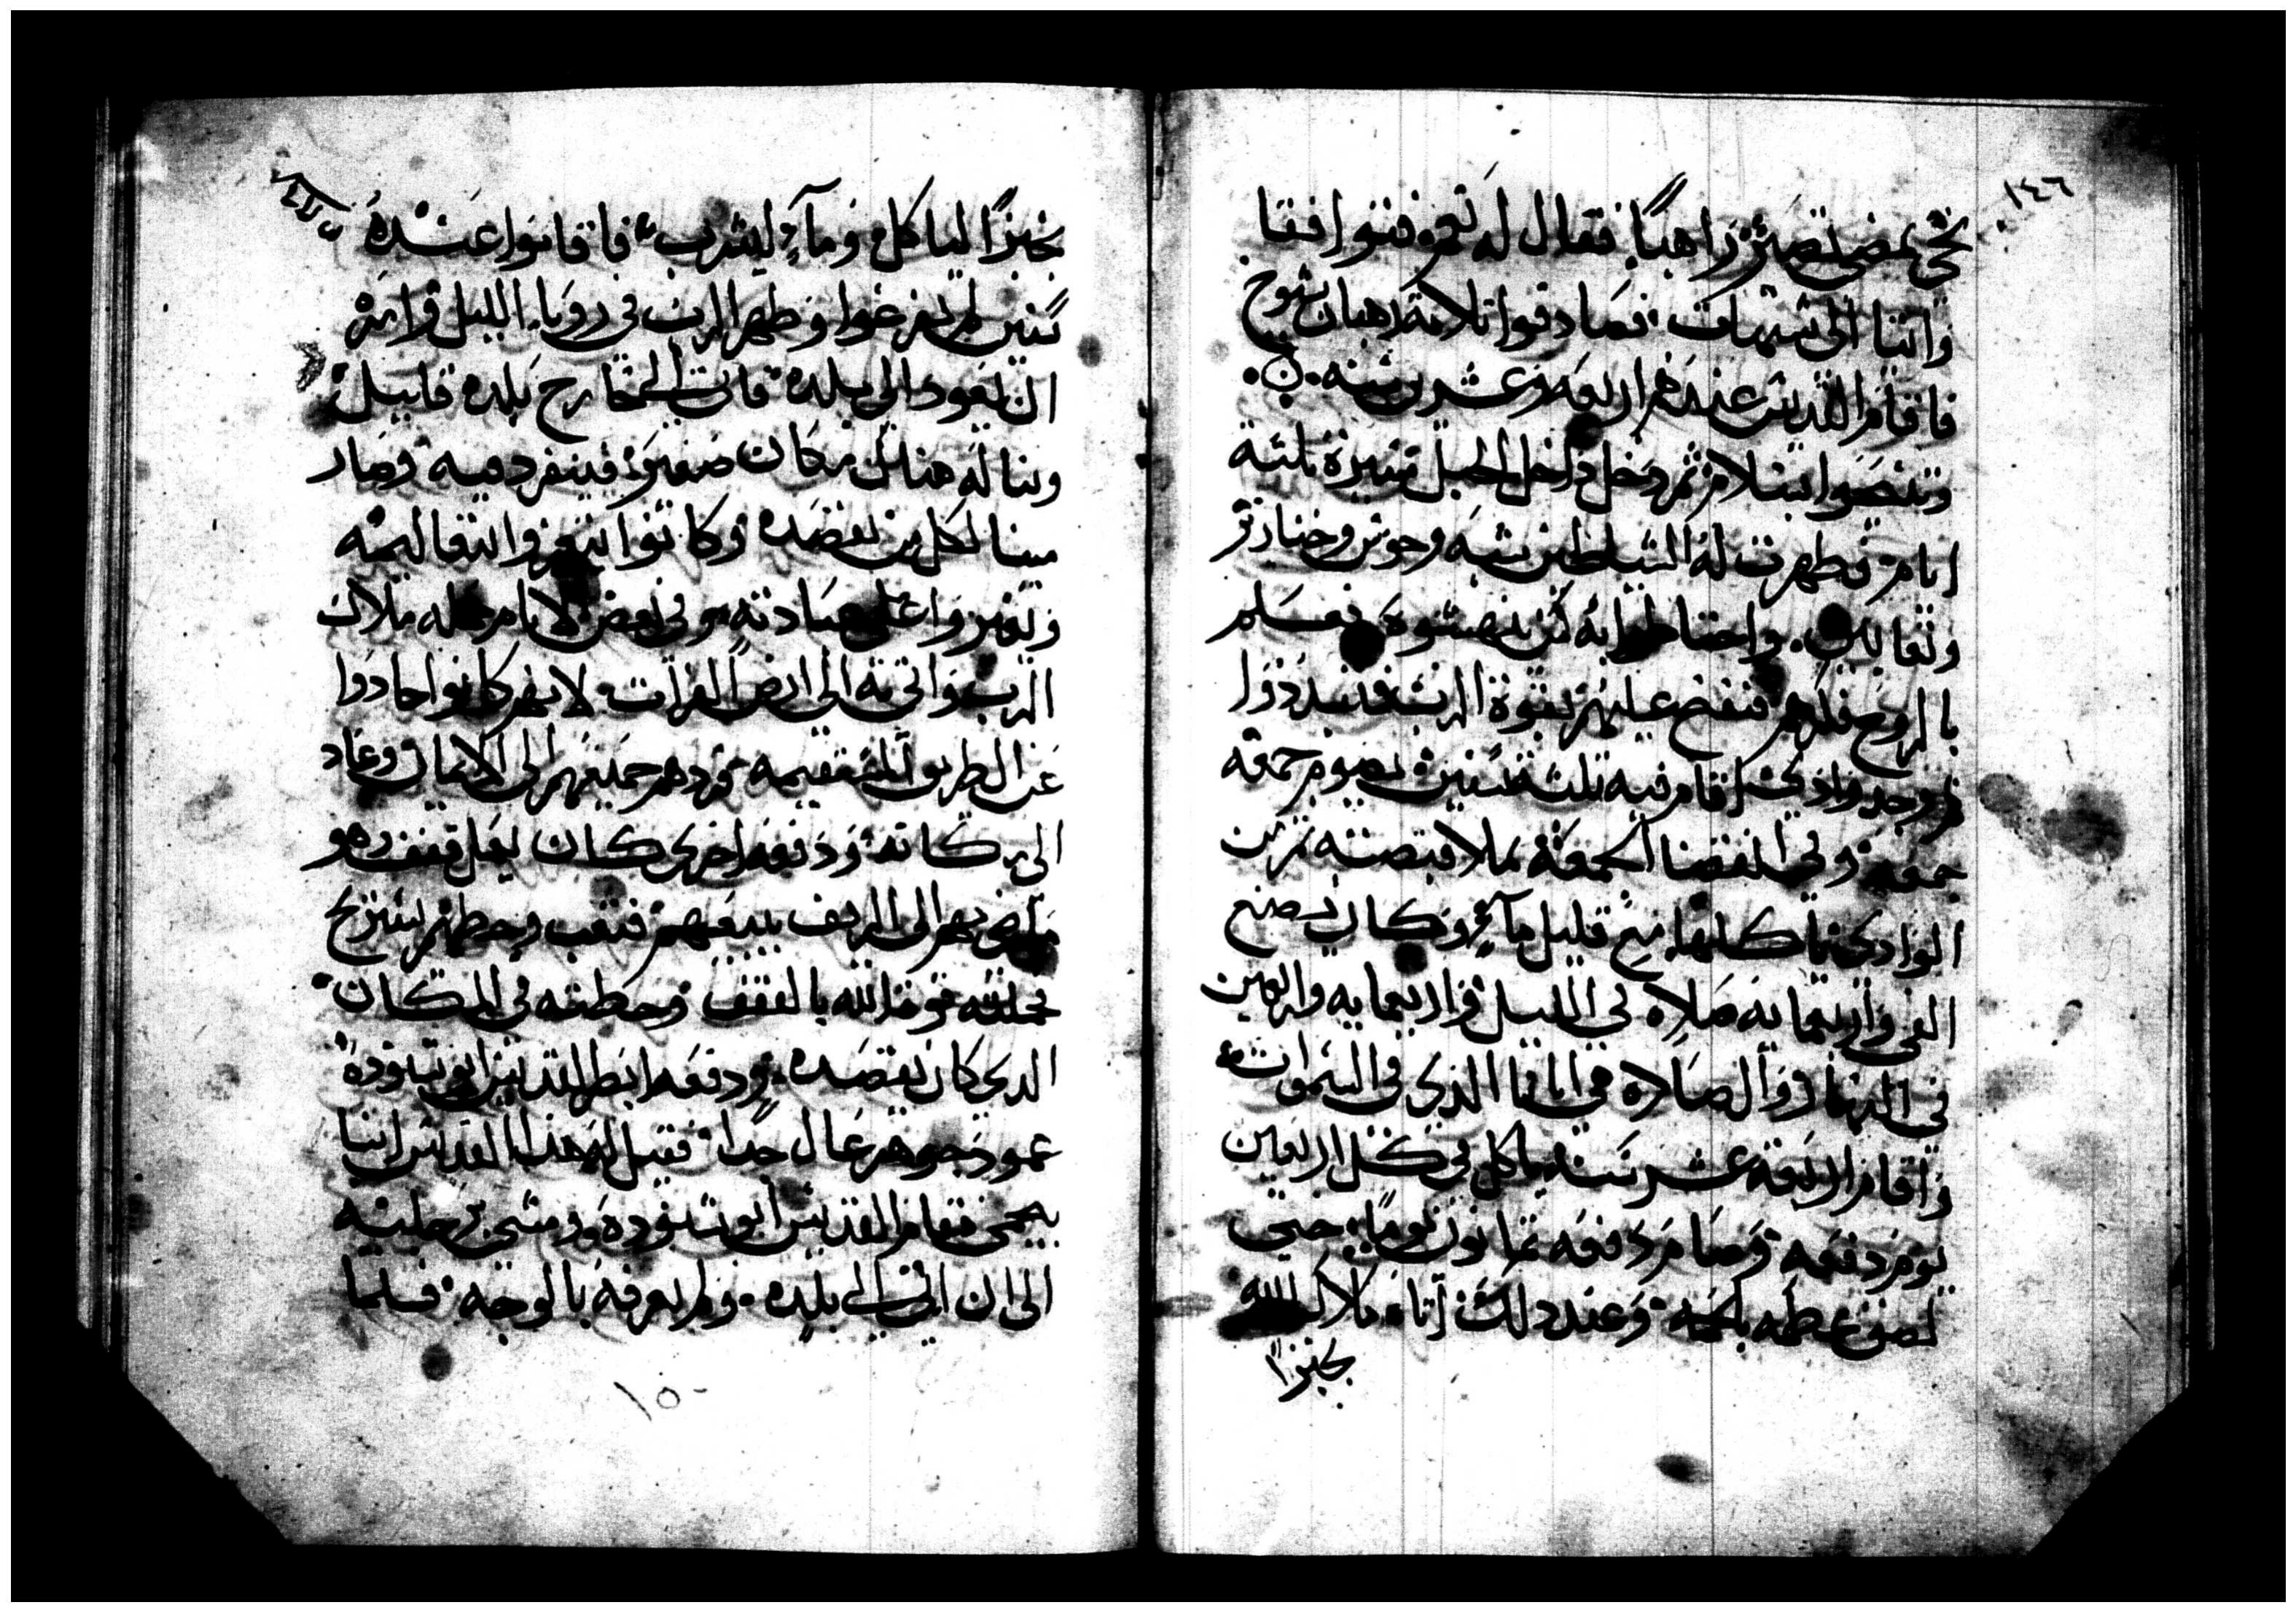 ١٤٦
نحن نمضي نصير رهباناً فقال له نعم فتوافقا
واتيا الى شيهات فصادفوا تلاتة رهبان شيوخ
فاقام القديس عندهم اربعه وعشرين سنه
وتنيحوا بسلام ثم دخل داخل الجبل مسيرة ثلثة
ايام فظهرت له الشياطين شبه وحوش وخنازير
وثعابين واحتاطوا به لكي ينهشوه فعلم
بالروح فنفخ عليهم بقوة الرب فتبددوا
ثم وجد وادي اقام فيه ثلث سنين يصوم جمعه
جمعه وفي انقضا الجمعة يملا قبضته تمر من
الوادي ياكلها مع قليل مآء وكان يصنع
الفي واربعمايه صلاه في الليل واربعمايه واربعين
في النهار والصلاه هي ابانا الذي في السموات
واقام اربعه عشر سنه ياكل في كل اربعين
يوم دفعه وصام دفعه تمانون يوماً حتي
لصق عظمه بلحمه وعند دلك آتاه ملاك الله
بخبزاً
بخبزاً لياكل ومآء ليشرب فاقاموا عنده
سنين لم يفرغوا وظهر الرب في رويا الليل وامره
ان يعود الى بلده فاتى الى خارج بلده قليل
وبنا له هناك مكان صغير فينفرد فيه وصار
مينا لكل من يقصده وكانوا ياتوا اليه
ويغيروا على عبادته وفي بعض الايام حمله ملاك
الرب واتى به الى ارض الفرات لانهم كانوا حادوا
عن الطريق المستقيمه فردهم جميعهم الى الايمان وعاد
الى مكانه ودفعه اخرى كان يعمل قفف وهو
ماضي بهم الى الريف يبيعهم فتعب وحطهم يستريح
فحملته قوة الله بالقفف وحطته في المكان
الدي كان يقصده ودفعه ابصر القديس ابو شنوده
عمود جوهر عال جداً فقيل له هدا القديس انبا
بيجمي فقام القديس ابو شنوده ومشى برجليه
الى ان اتى الى بلده ولم يعرفه بالوجه فلما
١٥٠